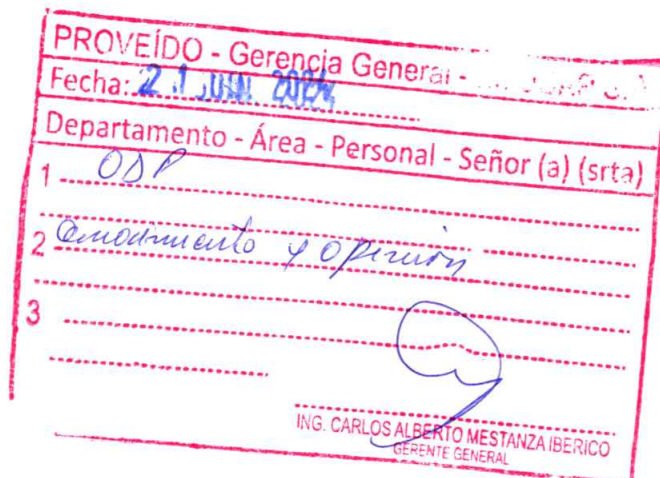 PROVEÍDO - Gerencia General -
Fecha: 21 JUN. 2024
Departamento - Área - Personal - Señor (a) (srta)
1 ODP
2 Conocimiento y opinión
3
ING. CARLOS ALBERTO MESTANZA IBERICO
GERENTE GENERAL